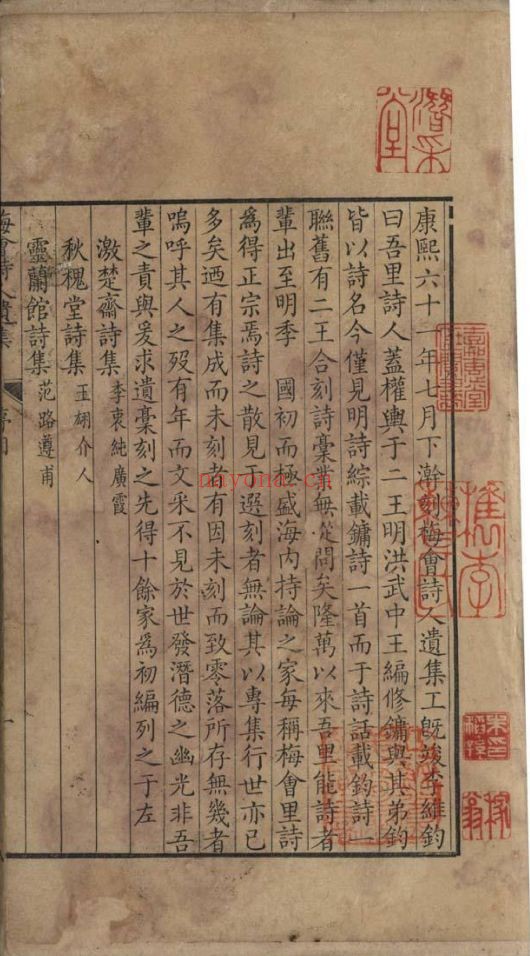 康熙六十一年七月下澣刻梅會詩人遺集工既竣李維鈞
曰吾里詩人蓋權輿于二王明洪武中王編修鏞與其弟鈞
皆以詩名今僅見明詩綜載鏞詩一首而于詩話載鈞詩一
聯舊有二王合刻詩稾業無從問矣隆萬以來吾里能詩者
輩出至明季 國初而極盛海內持論之家每稱梅會里詩
為得正宗焉詩之散見于選刻者無論其以專集行世亦已
多矣迺有集成而未刻者有因未刻而致零落所存無幾者
嗚呼其人之歿有年而文采不見於世發潛德之幽光非吾
輩之責與爰求遺稾刻之先得十餘家為初編列之于左
激楚齋詩集 李衷純廣霞
秋槐堂詩集 王翃介人
靈蘭館詩集 范路遵甫
潛采堂
檇李
mayona.cn